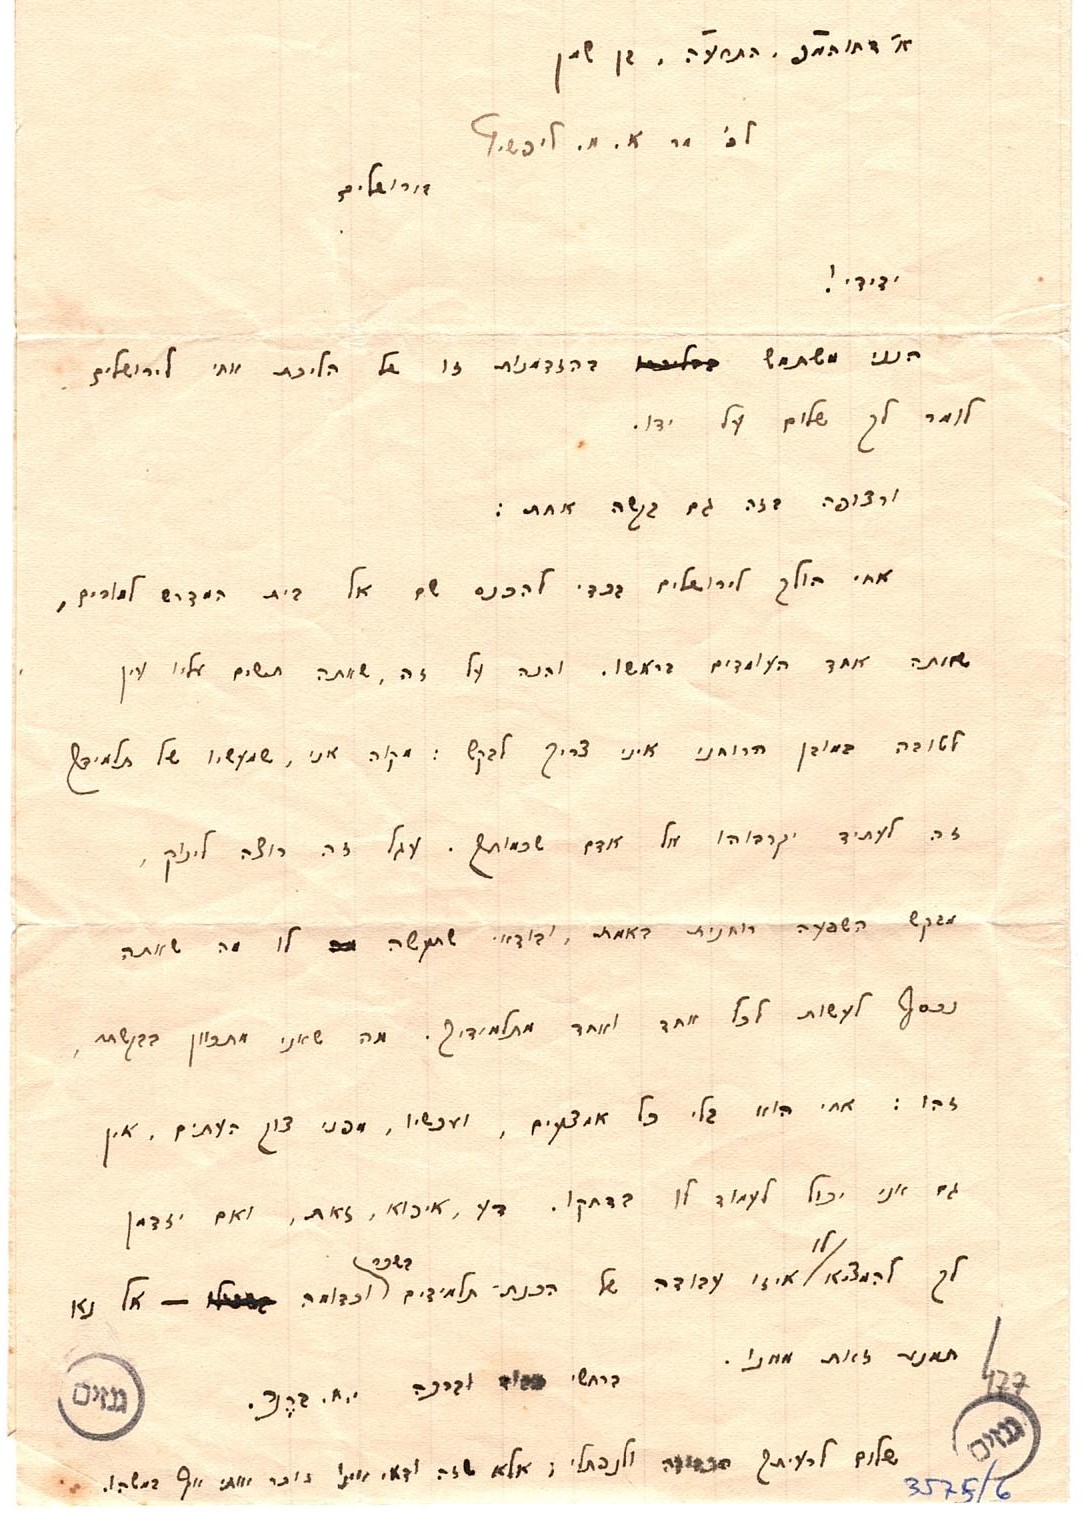 א׳ דחוהמ״פ, התרע״ה, בן שמן
לכ׳ מר א. מ. ליפשיץ
בירושלים
ידידי!
הנני משתמש בהזדמנות זו של הליכת אחי לירושלים
לומר לך שלום על ידו.
ורצופה בזה גם בקשה אחת:
אחי הולך לירושלים בכדי להכנס שם אל בית המדרש למורים,
שאתה אחד העומדים בראשו. והנה על זה, שאתה תשים אליו עין
לטובה במובן הרוחני איני צריך לבקש: מקוה אני, שמעשיו של תלמידך
זה לעתיד יקרבוהו אל אדם שכמותך. עגל זה רוצה לינוק,
מבקש השפעה רוחנית באמת, ובודאי שתעשה לו מה שאתה
נכסף לעשות לכל אחד ואחד מתלמידיך. מה שאני מתכוון בבקשתי,
זהו: אחי הוא בלי כל אמצעים, ועכשיו, מפני צוק העתים, אין
גם אני יכול לעמוד לו בדחקו. דע, איפוא, זאת, ואם יזדמן
לך להמציא לו איזו עבודה של הכנת-תלמידים בשכר וכדומה — אל נא
תמנע זאת ממנו.
ברחשי כבוד וברכה י. ח. ברנר.
שלום לרעיתך ולנפתלי; אלא שזה ודאי אינו זוכר אותי אף במשהו.
גנזים
גנזים
177
3575/6